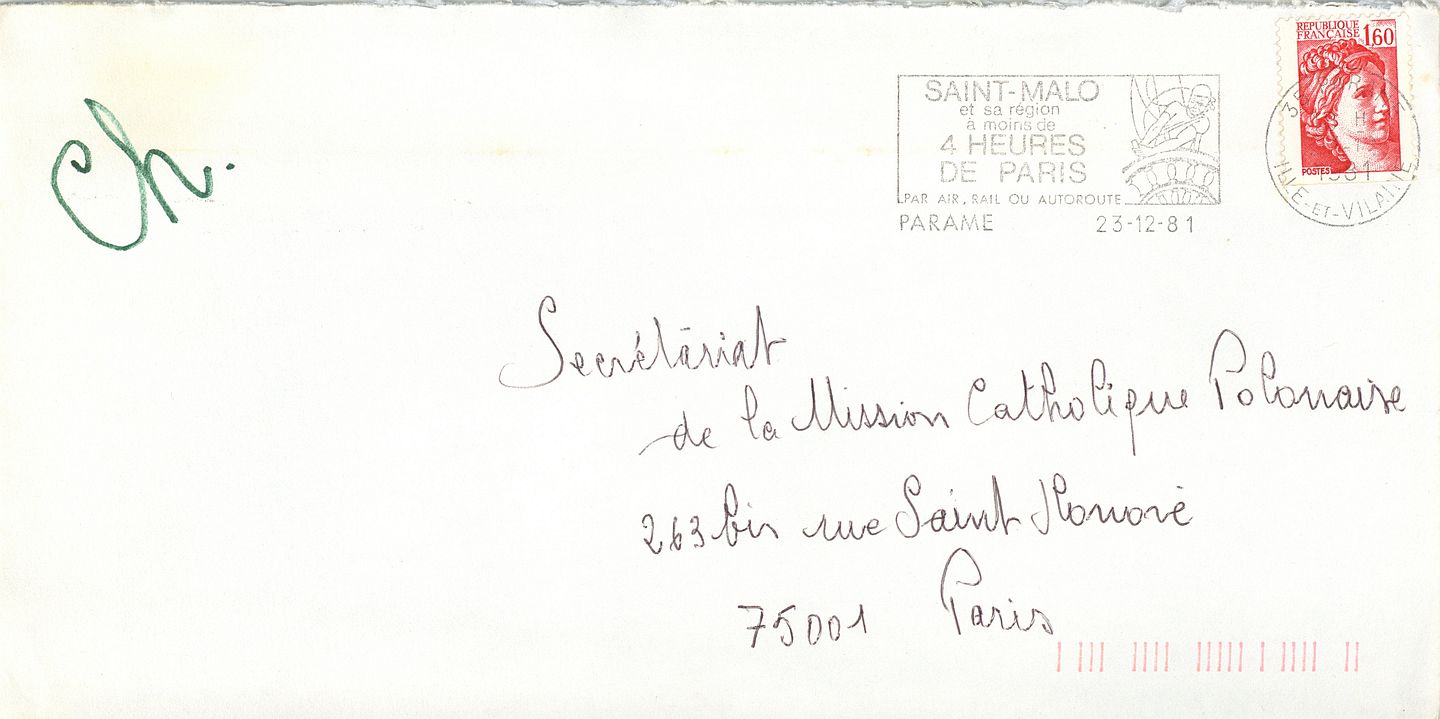 Ch.
SAINT-MALO
et sa région
à moins de
4 HEURES
DE PARIS
PAR AIR, RAIL OU AUTOROUTE
PARAME 23-12-81
REPUBLIQUE
FRANÇAISE 1,60
POSTES
1981
ILLE-ET-VILAINE
Secrétariat
de la Mission Catholique Polonaise
263 bis rue Saint Honoré
75001 Paris